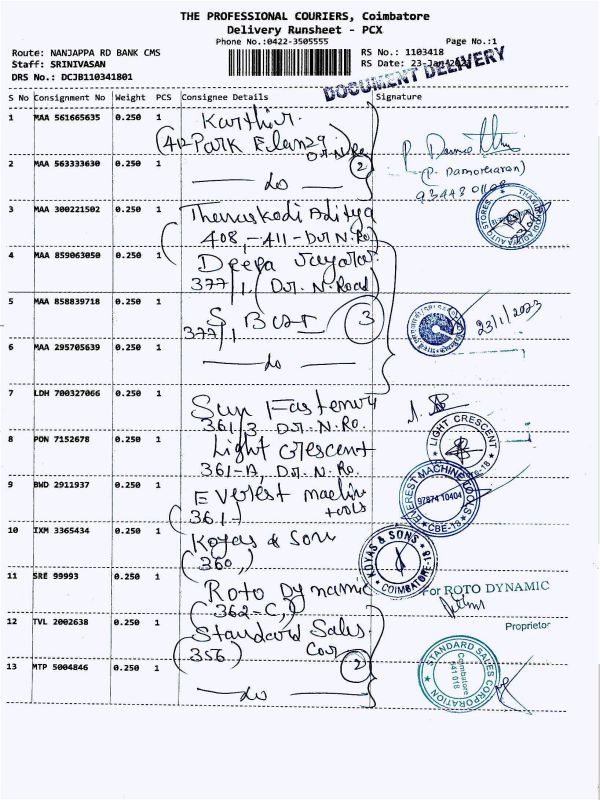 THE PROFESSIONAL COURIERS, Coimbatore
Delivery Runsheet - PCX
Phone No.:0422-3505555
Page No.:1
Route: NANJAPPA RD BANK CMS
RS No.: 1103418
Staff: SRINIVASAN
RS Date: 23-Jan-2023
DRS No.: DCJB110341801
DOCUMENT DELIVERY
S No Consignment No Weight PCS Consignee Details Signature
1 MAA 561665635 0.250 1 Karthik.
(412 Park Elanza
Dr. N. Ro)
P. Damo
(P. Damotharan)
2 MAA 563333630 0.250 1 — do — 2
3 MAA 300221502 0.250 1 Thanuskodi Aditya
408, -411- Dr. N. Ro)
THANUSKODI ADITYA AUTO STORES
4 MAA 859063050 0.250 1 Deepa Jayaram
377/1, (Dr. N. Road)
5 MAA 858839718 0.250 1 S BCST 3
377/1
23/1/2023
6 MAA 295705639 0.250 1 — do —
7 LDH 700327066 0.250 1 Sun Fasteners
361/3 Dr. N. Ro.
8 PON 7152678 0.250 1 Light Crescent
361-A, Dr. N. Ro.
LIGHT CRESCENT
9 BWD 2911937 0.250 1 Everest machine
tools
(361-)
EVEREST MACHINE TOOLS
97874 10404
CBE-18
10 IXM 3365434 0.250 1 Koyas & Son
(360,)
KOYAS & SONS
COIMBATORE-18
11 SRE 99993 0.250 1 Roto Dynamic
(362-C,)
For ROTO DYNAMIC
Proprietor
12 TVL 2002638 0.250 1 Standard Sales.
Cor
(356)
13 MTP 5004846 0.250 1 — do — 2
STANDARD SALES CORPORATION
Coimbatore
641 018